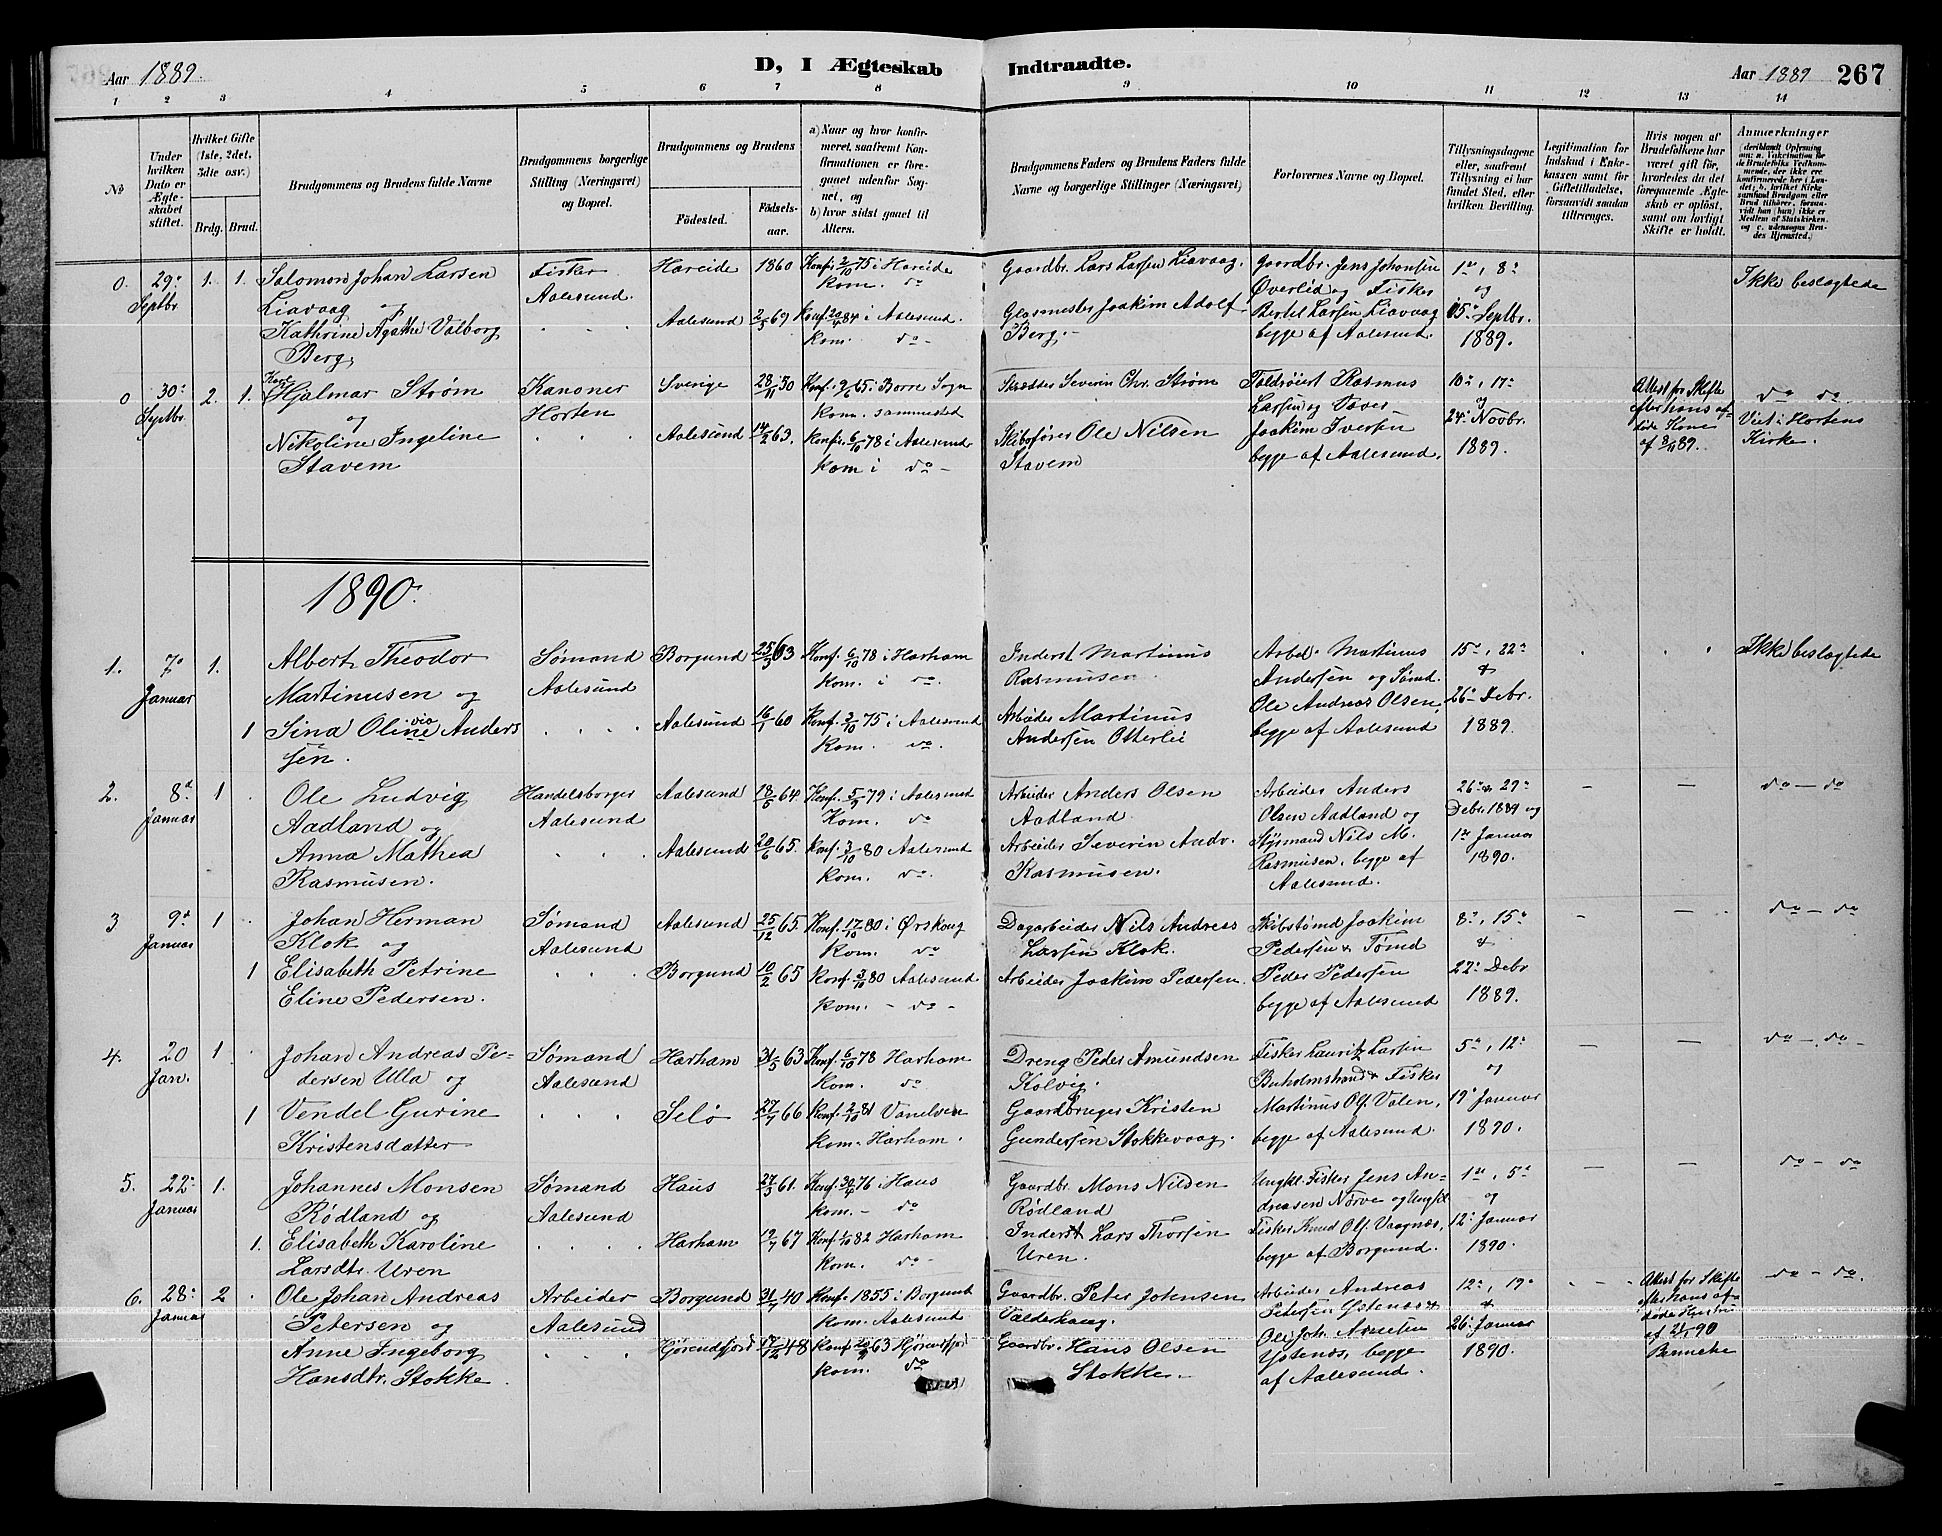 Aar 1889.
D, I Ægteskab Indtraadte.
Aar 1889
267
1 2 3 4 5 6 7 8 9 10 11 12 13 14
No
Under hvilken Dato er Ægteskabet stiftet.
Hvilket Gifte (1ste, 2det, 3die osv.)
Brdg. Brud.
Brudgommens og Brudens fulde Navne
Brudgommens borgerlige Stilling (Næringsvei) og Bopæl.
Brudgommens og Brudens
Födested.
Födselsaar.
a) Naar og hvor konfirmeret, saafremt Konfirmationen er foregaaet udenfor Sognet, og
b) hvor sidst gaaet til Alters.
Brudgommens Faders og Brudens Faders fulde Navne og borgerlige Stillinger (Næringsvei)
Forlovernes Navne og Bopæl.
Tillysningsdagene eller, saafremt Tillysning ei har fundet Sted, efter hvilken Bevilling.
Legitimation for Indskud i Enkekassen samt for Giftetilladelse, forsaavidt saadan tiltrænges.
Hvis nogen af Brudefolkene har været gift för, hvorledes da det foregaaende Ægteskab er oplöst, samt om lovligt Skifte er holdt.
Anmærkninger
0. 29de Septbr 1. 1.
Salomon Johan Larsen
Liavaag og
Kathrine Agathe Valborg
Berg,
Fisker
Aalesund.
Hareide 1860
Aalesund 2/5 69
Konf. 3/10 75 i Hareide
Kom. do
i Aalesund.
Kom. do -
Gaardbr. Lars Larsen Liavaag.
Glasmester Joakim Adolf
Berg. -
Gaardbr. Jens Johansen
Øverlid og Fisker
Bertel Larsen Liavaag
begge af Aalesund.
1ste, 8de
og
15de Septbr.
1889.
Ikke beslægtede
0 30te Septbr. 2. 1.
Karl
Hjalmar Strøm
og
Nikoline Ingeline
Stavem
Kanoner
Horten
Sverige 28/11 30
Aalesund 14/2 63.
Konf. 9/6 65. i Borre Sogn
Kom. sammested
Konf. 6/10 78 i Aalesund
Kom i do -
Skrædder Severin Chr. Strøm
Skibsfører Ole Nilsen
Stavem
Toldrøiert Rasmus
Larsen og
Joakim Iversen
begge af Aalesund.
10de, 17de
og
24de Novbr.
1889.
Attest for Skifte
efter hans afdøde Kone
af 8/11 89.
do do
Viet i Hortens
Kirke.
1890.
1. 7de Januar 1. 1
Albert Theodor
Martinusen og
Sina Oline via Anderssen.
Sømand
Aalesund
Borgund 25/3 63
Aalesund 16/1 60
Konf. 6/10 78 i Harham
Kom. i do.
Konf. 3/10 75 i Aalesund
Kom. do.
Inderst Martinus
Rasmusen.
Arbeider Martinus
Andersen Otterlei
Arbd. Martinus
Andersen og Sømd.
Ole Andreas Olsen,
begge af Aalesund
15de, 22de
&
26de Debr.
1889.
Ikke beslægtede
2. 8de Januar 1
Ole Ludvig
Aadland og
Anna Mathea
Rasmusen.
Handelsborger
Aalesund
Aalesund 18/5 64.
Aalesund 20/6 65.
Konf. 5/9 79 i Aalesund
Kom. do
Konf. 3/10 80 Aalesund
Kom. do.
Arbeider Anders Olsen
Aadland.
Arbeider Severin Andr.
Rasmusen.
Arbeider Anders
Olsen Aadland og
Styrmand Nils M.
Rasmusen, begge af
Aalesund.
26de & 29de
Debr. 1889 og
1ste Januar
1890.
do - do
3 9de Januar 1 1
Johan Herman
Klok og
Elisabeth Petrine
Eline Pedersen.
Sømand
Aalesund
Aalesund 25/12 65.
Borgund 10/2 65
Konf. 17/10 80 i Ørskoug
Kom. do
Konf. 3/10 80 Aalesund
Kom. - do -
Dagarbeider Nils Andreas
Larsen Klok.
Arbeider Joakim Pedersen.
Skibstømd Joakim
Pedersen & Tømd
Peder Pedersen
begge af Aalesund
8de, 15de
&
22de Debr
1889.
do - do
4. 20 Jan. 1 1
Johan Andreas Pedersen
Ulla og
Vendel Gurine
Kristensdatter
Sømand
Aalesund
Harham 31/5 63
Selø 27/7 66
Konf. 6/10 78 Harham
Kom. do
Konf. 2/10 81 Vanelven
Kom. Harham.
Dreng Peder Amundsen
Kolvig.
Gaardbruger Kristen
Gundersen Stokkevaag.
Fisker Lauritz Larsen
Buholmstrand & Fisker
Martinus Ols. Valen,
begge af Aalesund.
5te, 12te
og
19de Januar
1890.
do - do -
5. 22de Januar 1. 1.
Johannes Monsen
Rødland og
Elisabeth Karoline
Larsdtr. Uren
Sømand
Aalesund
Haus 27/3 61.
Harham 19/7 67
Konf. 30/4 76 i Haus
Kom. - do
Konf. 1/10 82 Harham
Kom. do -
Gaardbr. Mons Nilsen
Rødland
Inderst Lars Thorsen
Uren.
Ungkl. Fisker Jens Andreasen
Nørve og Ungkl
Fisker Knud Ols. Vaagnæs,
begge af Borgund.
1ste, 5te
og
12te Januar
1890.
do - do
6. 28de Januar 2
Ole Johan Andreas
Petersen og
Anne Ingeborg
Hansdtr. Stokke.
Arbeider
Aalesund
Borgund 31/7 40
Hjørendfjord 17/12 48
Konf. 1855 i Borgund
Kom. Aalesund
Konf. 63 Hjørendfjord
Kom. do
Gaardbr. Peter Johnsen
Valderhaug.
Gaardbr. Hans Olsen
Stokke.
Arbeider Andreas
Pedersen Ystenæs &
Ole Joh. Arnesen
Ystenæs, begge
af Aalesund.
12te, 19de
&
26de Januar
1890.
Attest for Skifte
efter hans afdøde Hustru
af 21/1 90
do - do.